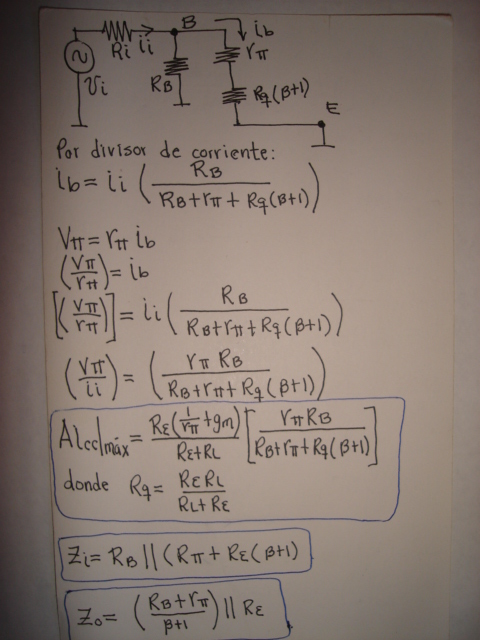 B
i_b
R_i
i_i
r_π
R_B
V_i
R_q(β+1)
E
Por divisor de corriente:
i_b = i_i (R_B / (R_B + r_π + R_q(β+1)))
V_π = r_π i_b
(V_π / r_π) = i_b
[(V_π / r_π)] = i_i (R_B / (R_B + r_π + R_q(β+1)))
(V_π / i_i) = (r_π R_B / (R_B + r_π + R_q(β+1)))
AI_cc|máx = (R_E(1/r_π + gm) / (R_E + R_L)) [r_π R_B / (R_B + r_π + R_q(β+1))]
donde R_q = R_E R_L / (R_L + R_E)
Z_i = R_B || (R_π + R_E(β+1)
Z_o = ((R_B + r_π) / (β+1)) || R_E